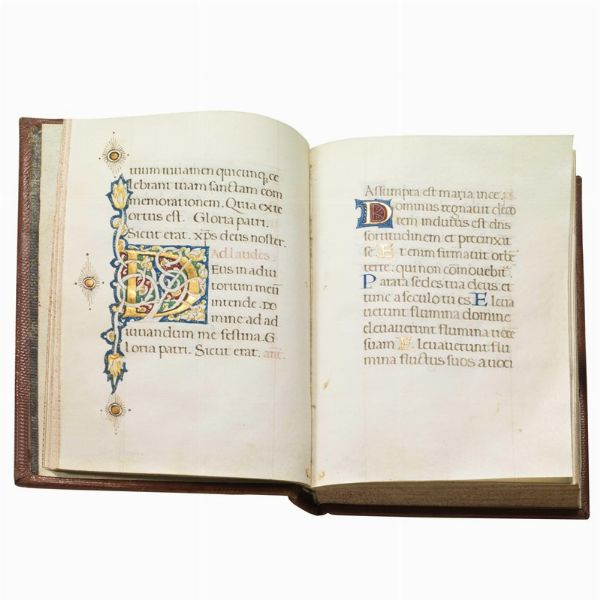 tuum iuuamen quicunq; ce
lebrant tuam sanctam com
memorationem. Quia exte
ortus est. Gloria patri.
Sicut erat. xp̄s deus noster.
Ad laudes
DEus in adiu
torium meū
intende. Do
mine ad ad
iuuandum me festina. G
loria patri. Sicut erat. ant.
Assumpta est maria in ce. ps.
Dominus regnauit deco
rem indutus est dn̄s
fortitudinem et precinxit
se. Et enim firmauit orbē
terre. qui non cōmouebit.
Parata sedes tua deus. et
tunc a seculo tu es. Eleua
uerunt flumina domine
eleuauerunt flumina uocē
suam. Eleuauerunt flu
mina fluctus suos a uoci